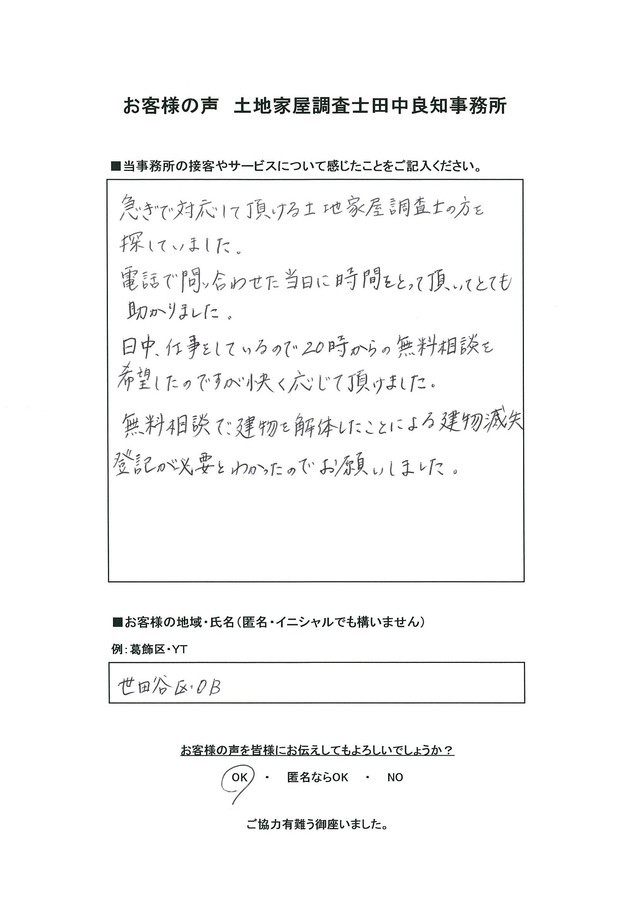 お客様の声　土地家屋調査士田中良知事務所
■当事務所の接客やサービスについて感じたことをご記入ください。
急ぎで対応して頂ける土地家屋調査士の方を
探していました。
電話で問い合わせた当日に時間をとって頂いてとても
助かりました。
日中、仕事をしているので20時からの無料相談を
希望したのですが快く応じて頂けました。
無料相談で建物を解体したことによる建物滅失
登記が必要とわかったのでお願いしました。
■お客様の地域・氏名（匿名・イニシャルでも構いません）
例：葛飾区・YT
世田谷区・OB
お客様の声を皆様にお伝えしてもよろしいでしょうか？
OK　・　匿名ならOK　・　NO
ご協力有難う御座いました。